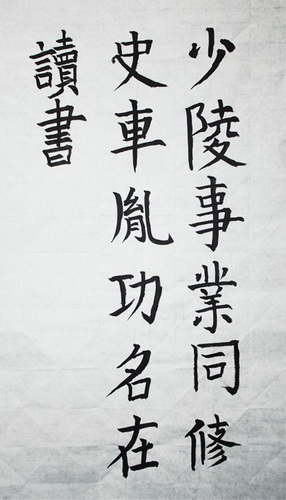 少陵事業同修
史車胤功名在
讀書